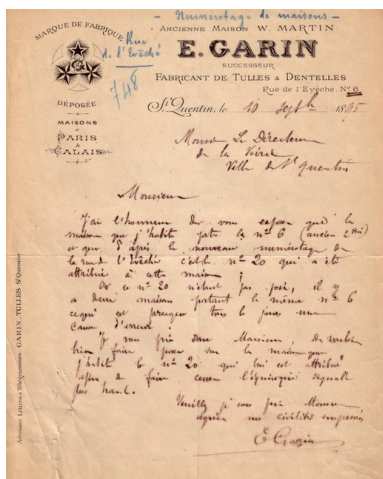 - Numérotage de maisons -
Rue
de l'Evêché
748
MARQUE DE FABRIQUE
DÉPOSÉE
MAISONS
à
PARIS
&
CALAIS
ANCIENNE MAISON W. MARTIN
E. GARIN
SUCCESSEUR
FABRICANT DE TULLES & DENTELLES
Rue de l'Evêché. N° 6
St Quentin, le 10 sept 1895
Monsieur Le Directeur
de la Voirie
Ville de St Quentin
Monsieur
J'ai l'honneur de vous exposer que la
maison que j'habite porte le n° 6 (ancien
et que d'après le nouveau numérotage de
la rue de l'Evêché c'est le n° 20 qui a été
attribué à cette maison ;
Or ce n° 20 n'étant pas posé, il y
a deux maisons portant le même n° 6
ce qui est presque tous les jours une
cause d'erreur.
Je vous prie donc Monsieur, de vouloir
bien faire poser sur la maison que
j'habite le n° 20 qui lui est attribué
afin de faire cesser l'équivoque signalé
plus haut.
Veuillez je vous prie Monsieur
agréer mes civilités empressées
E Garin
Adresser Lettres & Télégrammes : GARIN - TULLES St Quentin